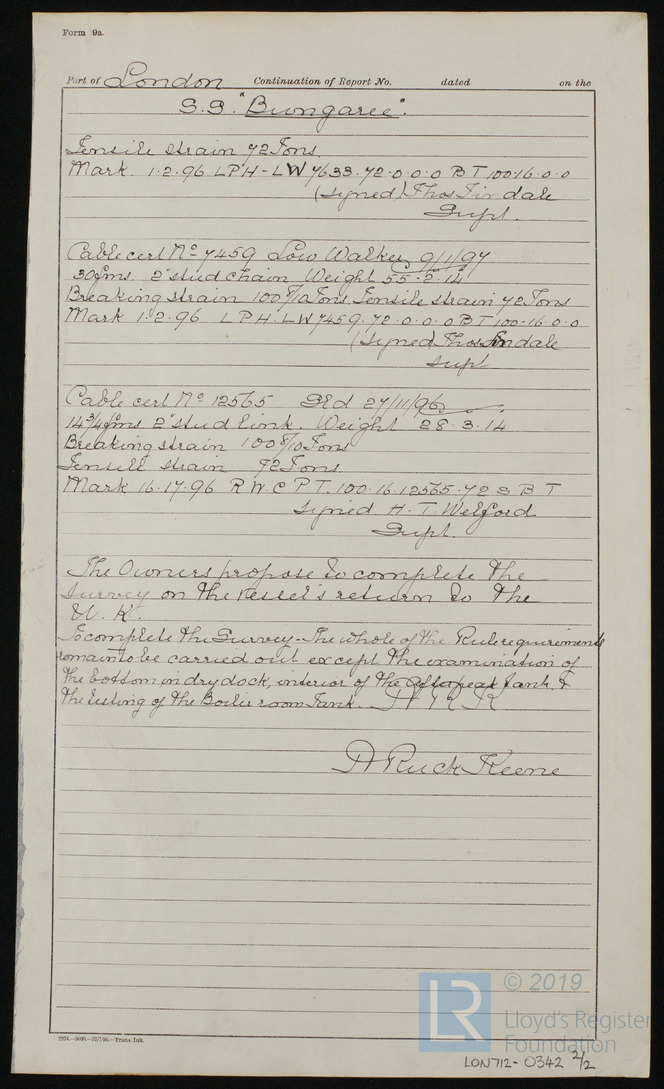 Form 9a.
Port of London Continuation of Report No. dated on the
S.S. "Bungaree".
Tensile strain 72 Tons.
Mark. 1.2.96 LPH-LW 7633.72.0.0.0 BT 100.16.0.0
(signed) Thos Tindale
Supt.
Cable cert No 7459 Low Walker 9/11/97
30 fms. 2" stud chain Weight 55.2.14
Breaking strain 100 8/10 Tons Tensile strain 72 Tons
Mark 1.2.96 LPH.LW 7459.72.0.0.0 BT 100.16.0.0
(signed) Thos Tindale
Supt
Cable cert No 12565 27/11/96
14 3/4 fms 2" stud link. Weight 28.3.14
Breaking strain 100 8/10 Tons
Tensile strain 72 Tons
Mark 16.17.96 RWCPT.100.16.12565.72 S B T
signed H. T. Welford
Supt.
The Owners propose to complete the
survey on the Vessel's return to the
U.K.
To complete the Survey-The whole of the Rule requirements
remain to be carried out except the examination of
the bottom in dry dock, interior of the Afterpeak tank &
the testing of the Boiler room Tank.
A Ruck Keene
2224.—5000.—22/7/96.—Trans. Ink.
LR
© 2019
Lloyd's Register
Foundation
LON712-0342 2/2